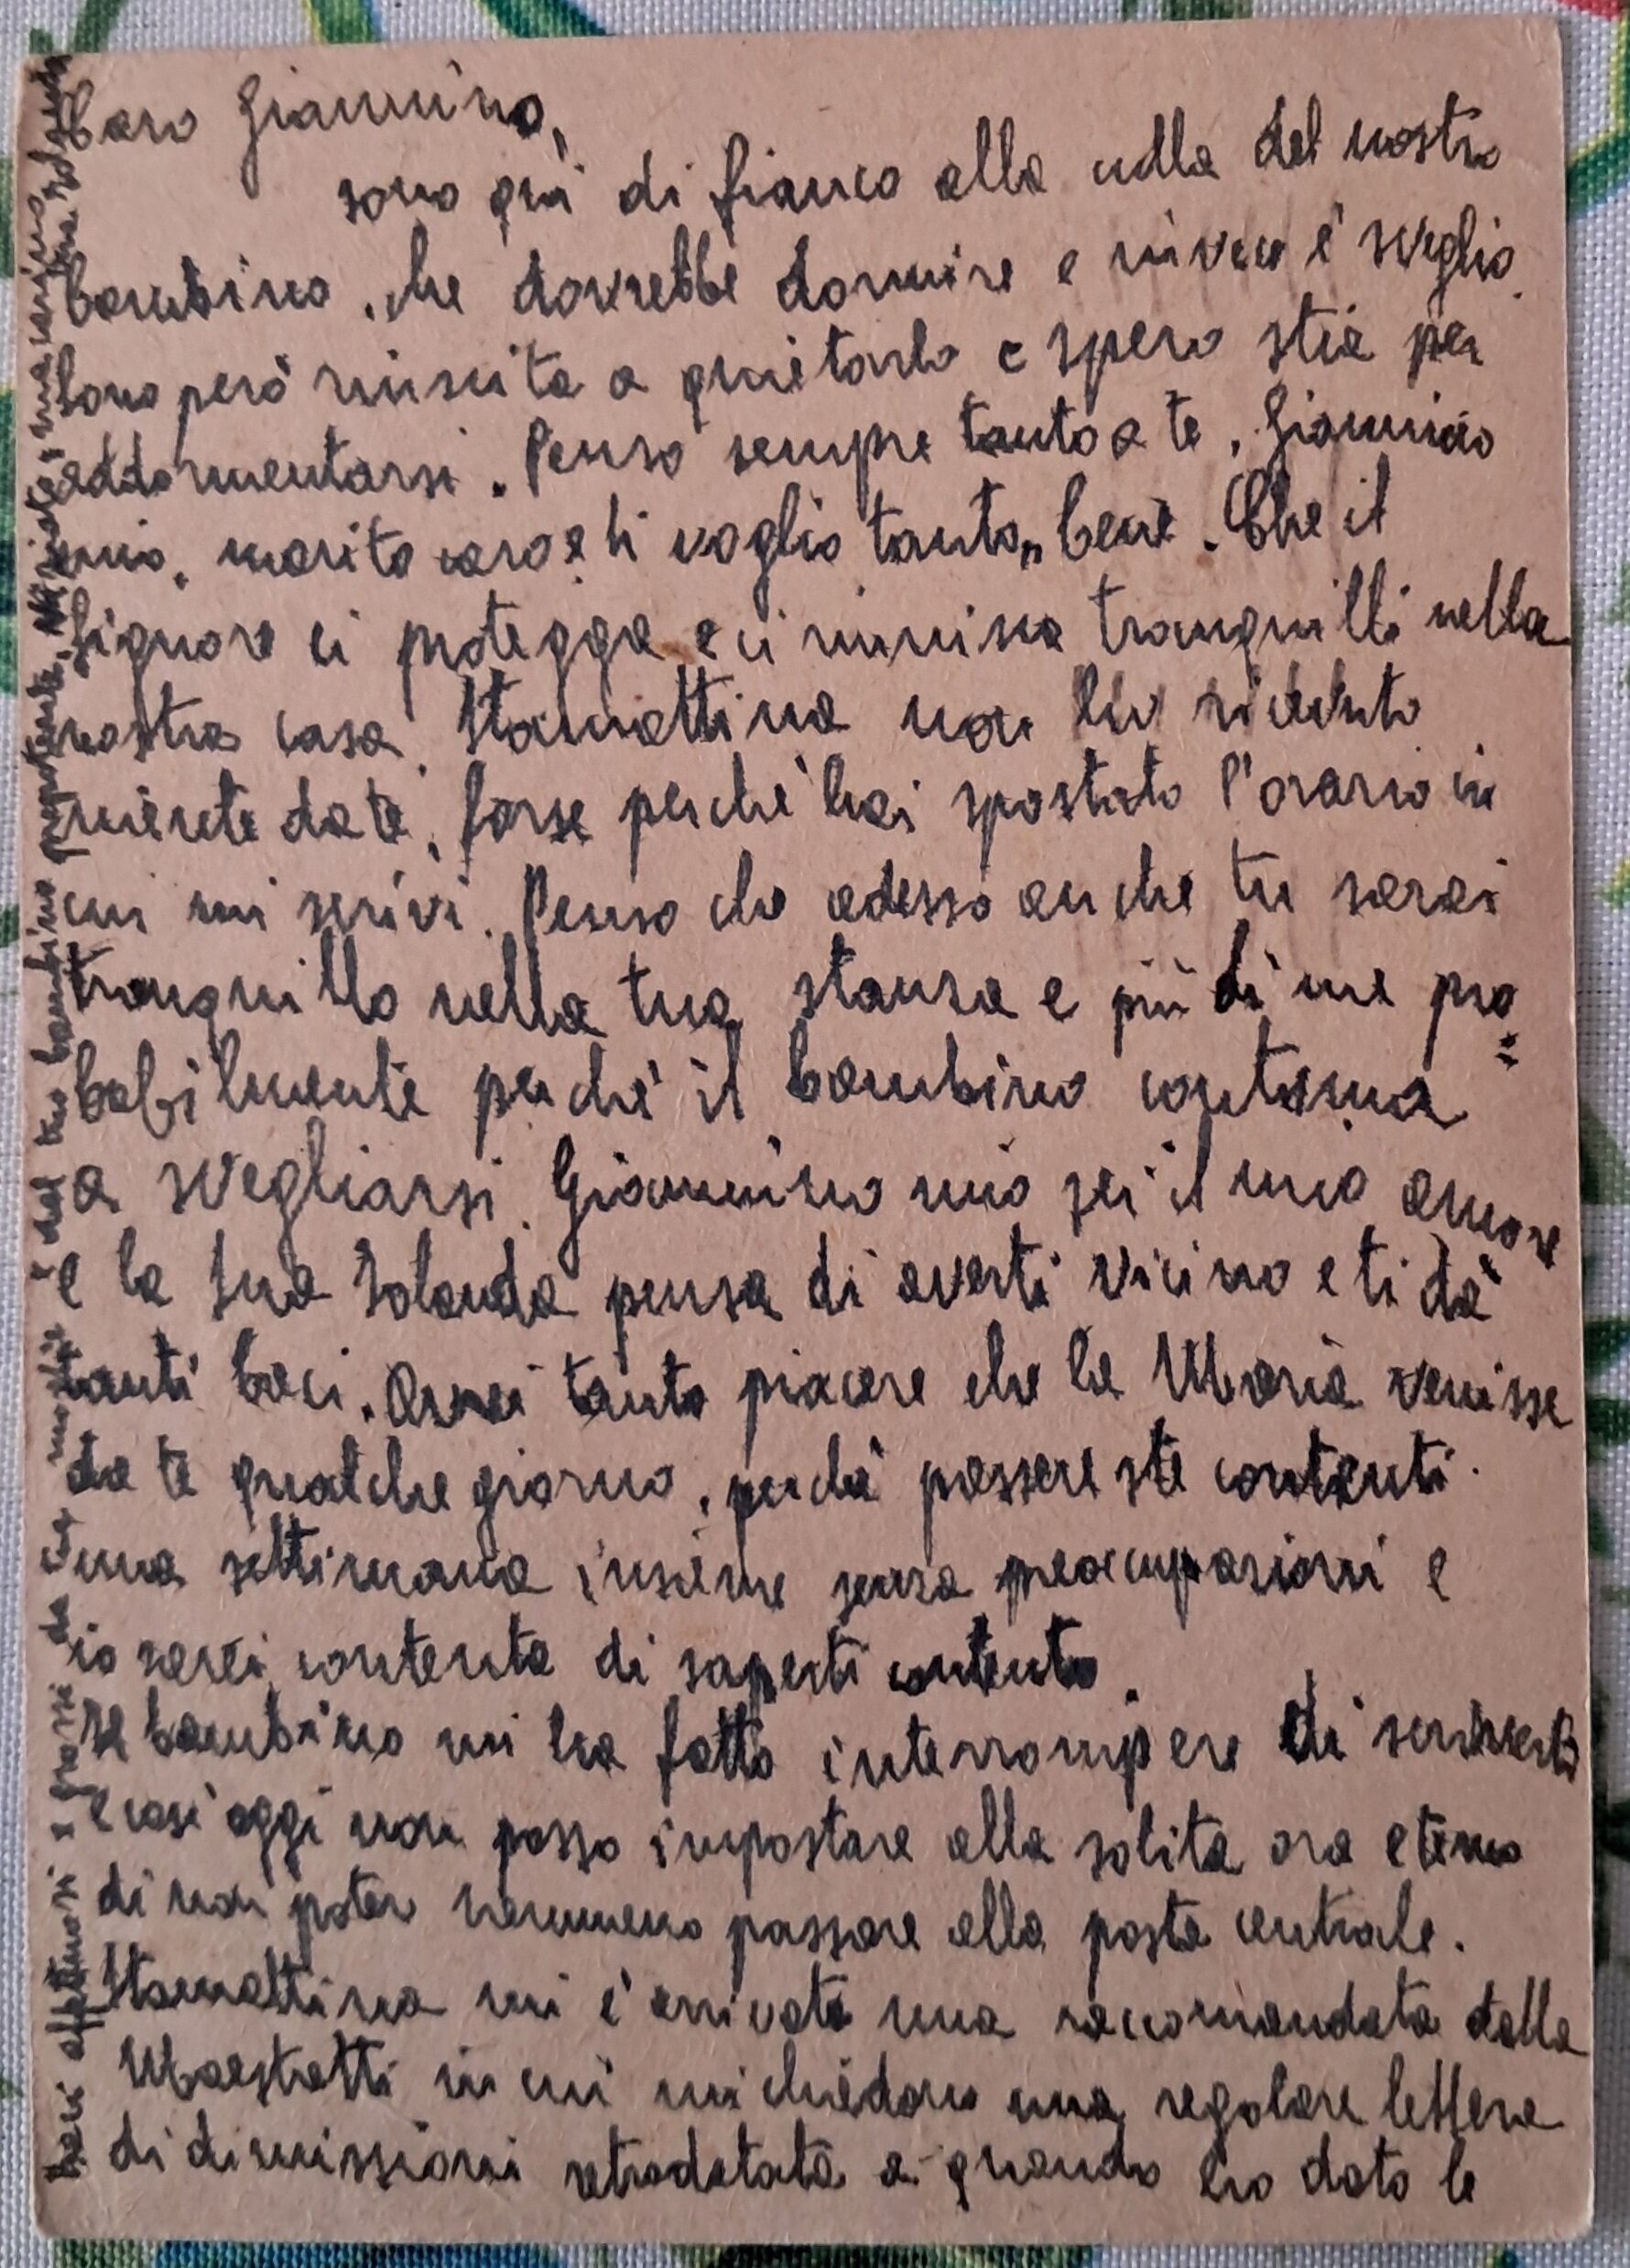 Caro Giannino,
sono quì di fianco alla culla del nostro
bambino, che dovrebbe dormire e invece è sveglio.
Sono però riuscita a quietarlo e spero stia per
addormentarsi. Penso sempre tanto a te, Giannino
mio, marito caro e ti voglio tanto, bene. Che il
Signore ci protegga e ci riunisca tranquilli nella
nostra casa. Stamattina non ho ricevuto
niente da te, forse perchè hai spostato l'orario in
cui mi scrivi. Penso che adesso anche tu sarai
tranquillo nella tua stanza e più di me pro=
babilmente perchè il bambino continua
a svegliarsi. Giannino mio sei il mio amore
e la tua Iolanda pensa di averti vicino e ti dà
tanti baci. Avrei tanto piacere che la Maria venisse
da te qualche giorno, perchè passereste contenti
una settimana insieme senza preoccupazioni e
io sarei contenta di saperti contento.
Il bambino mi ha fatto interrompere di scriverti
e così oggi non posso impostare alla solita ora e temo
di non poter nemmeno passare alla posta centrale.
Stamattina mi è arrivata una raccomandata dalla
Maestretti in cui mi chiedono una regolare lettera
di dimissioni retrodatata a quando ho dato le
baci affettuosi e grazie da tua moglie e dal tuo bambino prepotente